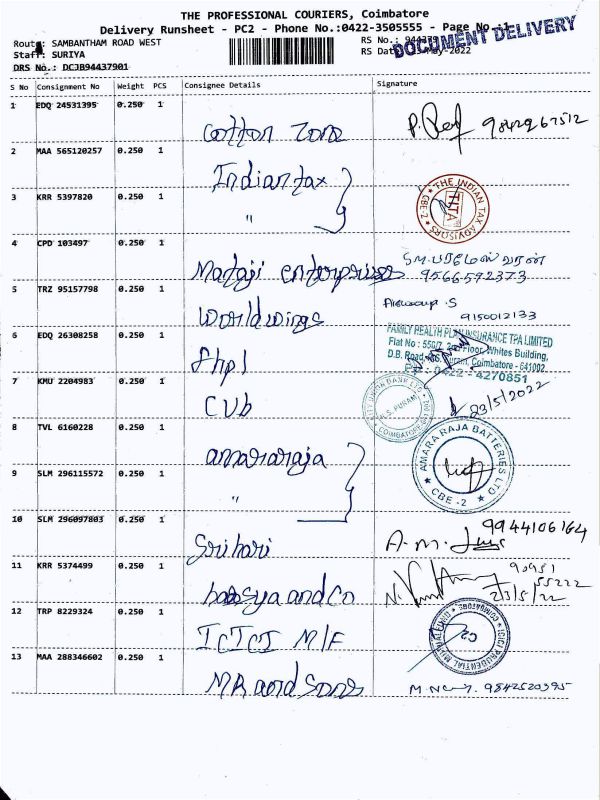 THE PROFESSIONAL COURIERS, Coimbatore
Delivery Runsheet - PC2 - Phone No.:0422-3505555 - Page No.:1
Route: SAMBANTHAM ROAD WEST
RS No.: 944379
Staff: SURIYA
RS Date: -May-2022
DOCUMENT DELIVERY
DRS No.: DCJB94437901
S No Consignment No Weight PCS Consignee Details Signature
1 EDQ 24531395 0.250 1
cotton zone
P. 9842967512
2 MAA 565120257 0.250 1
Indian tax
3 KRR 5397820 0.250 1
"
THE INDIAN TAX ADVISORS
TITA
CBE-2
4 CPD 103497 0.250 1
Mataji enterprises
S.M.பரமேஸ்வரன்
9566592373
5 TRZ 95157798 0.250 1
world wings
Aiswarya .S
9150012133
6 EDQ 26308258 0.250 1
fhpl
FAMILY HEALTH PLAN INSURANCE TPA LIMITED
Flat No : 556/7, 2nd Floor, Whites Building,
D.B. Road, R.S. Puram, Coimbatore - 641002.
PH : 0422 - 4270851
7 KMU 2204983 0.250 1
CUB
CITY UNION BANK LTD
R.S. PURAM
COIMBATORE
23/5/2022
8 TVL 6160228 0.250 1
amararaja
9 SLM 296115572 0.250 1
"
AMARA RAJA BATTERIES LTD
CBE-2
10 SLM 296097803 0.250 1
Srihari
A.M.
9944106164
11 KRR 5374499 0.250 1
and co
N.
90951
55222
23/5/22
12 TRP 8229324 0.250 1
ICICI M/F
ICICI PRUDENTIAL MUTUAL FUND
COIMBATORE
13 MAA 288346602 0.250 1
MR and Sons
M. 9842520395